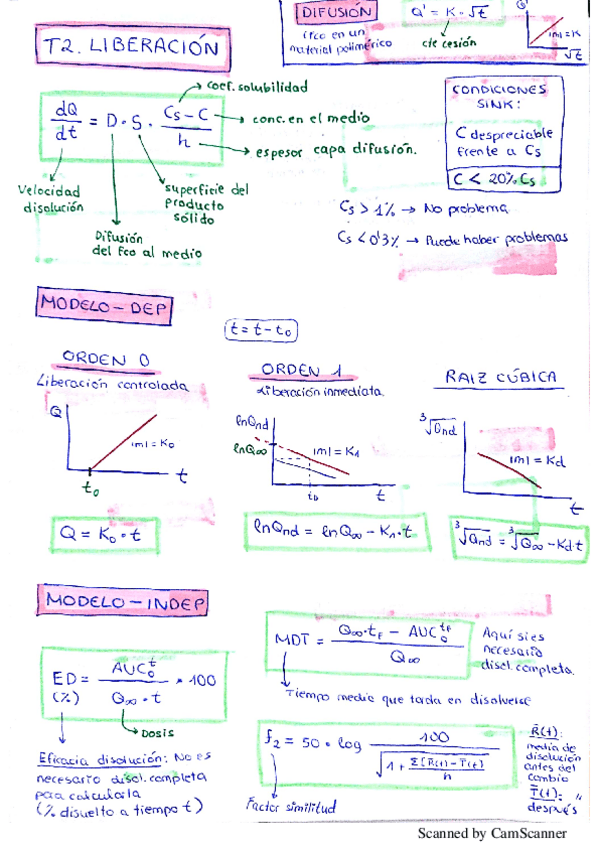 DIFUSIÓN
Q' = K · √t
fco en un
material polimérico
cte cesión
Q'
|m| = K
√t
T2. LIBERACIÓN
dQ/dt = D · S · (Cs - C)/h
coef. solubilidad
conc. en el medio
espesor capa difusión.
Velocidad
disolución
superficie del
producto
sólido
Difusión
del fco al medio
CONDICIONES
SINK:
C despreciable
frente a Cs
C < 20% Cs
Cs > 1% → No problema
Cs < 0'3% → Puede haber problemas
MODELO-DEP
t = t - to
ORDEN 0
Liberación controlada
Q
|m| = Ko
to
t
Q = Ko · t
ORDEN 1
Liberación inmediata.
lnQnd
lnQ∞
|m| = K1
to
t
lnQnd = lnQ∞ - K1 · t
RAIZ CÚBICA
∛Qnd
|m| = Kd
t
∛Qnd = ∛Q∞ - Kd t
MODELO-INDEP
ED = (AUC₀ᵗ)/(Q∞ · t) * 100
(%)
Dosis
Eficacia disolución: No es
necesario disol. completa
para calcularla
(% disuelto a tiempo t)
MDT = (Q∞ · tF - AUC₀ᵗF)/(Q∞)
Aquí si es
necesario
disol. completa.
Tiempo medio que tarda en disolverse
f2 = 50 · log 100/√(1 + Σ[R̄(t) - T̄(t)]/n)
Factor similitud
R̄(t):
media de
disolución
antes del
cambio
T̄(t): "
después
Scanned by CamScanner